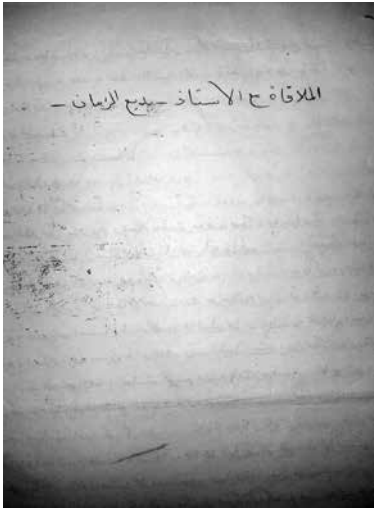 الملاقاة مع الاستاذ - بديع الزمان -